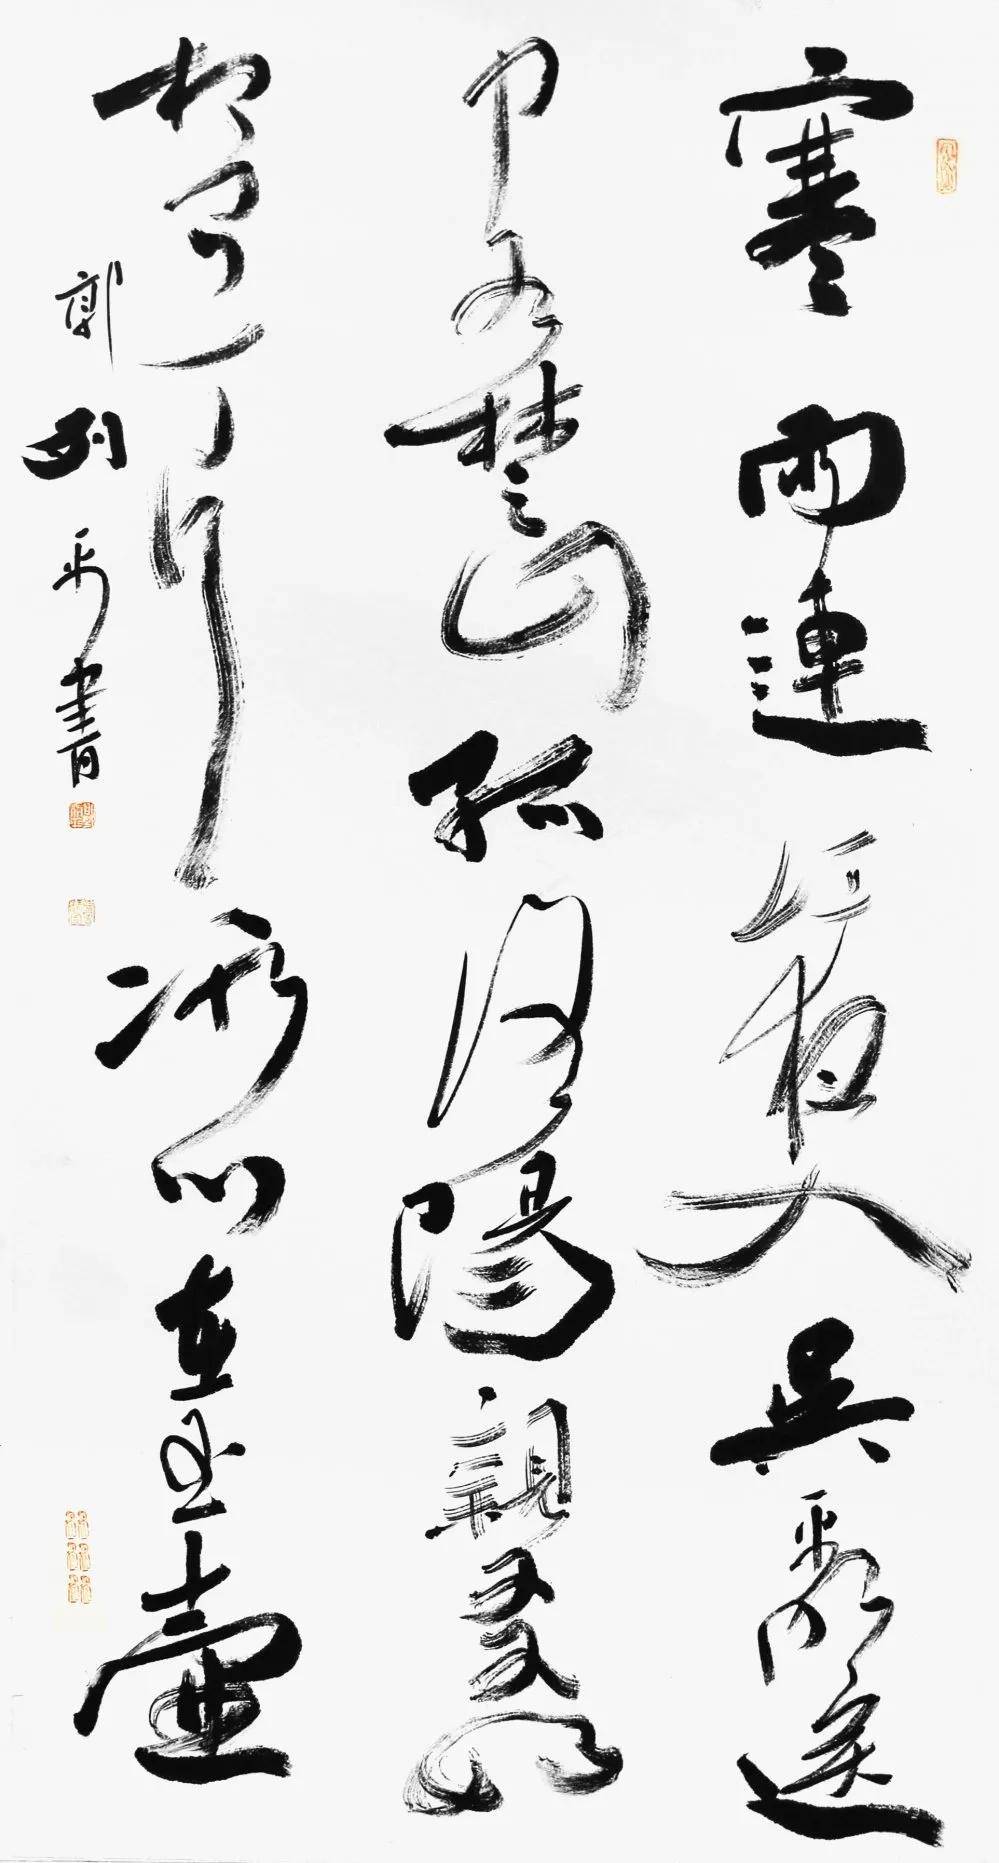 寒雨連江夜入吳平明送
客楚山孤洛陽親友如
相問一片冰心在玉壺
郭列平書